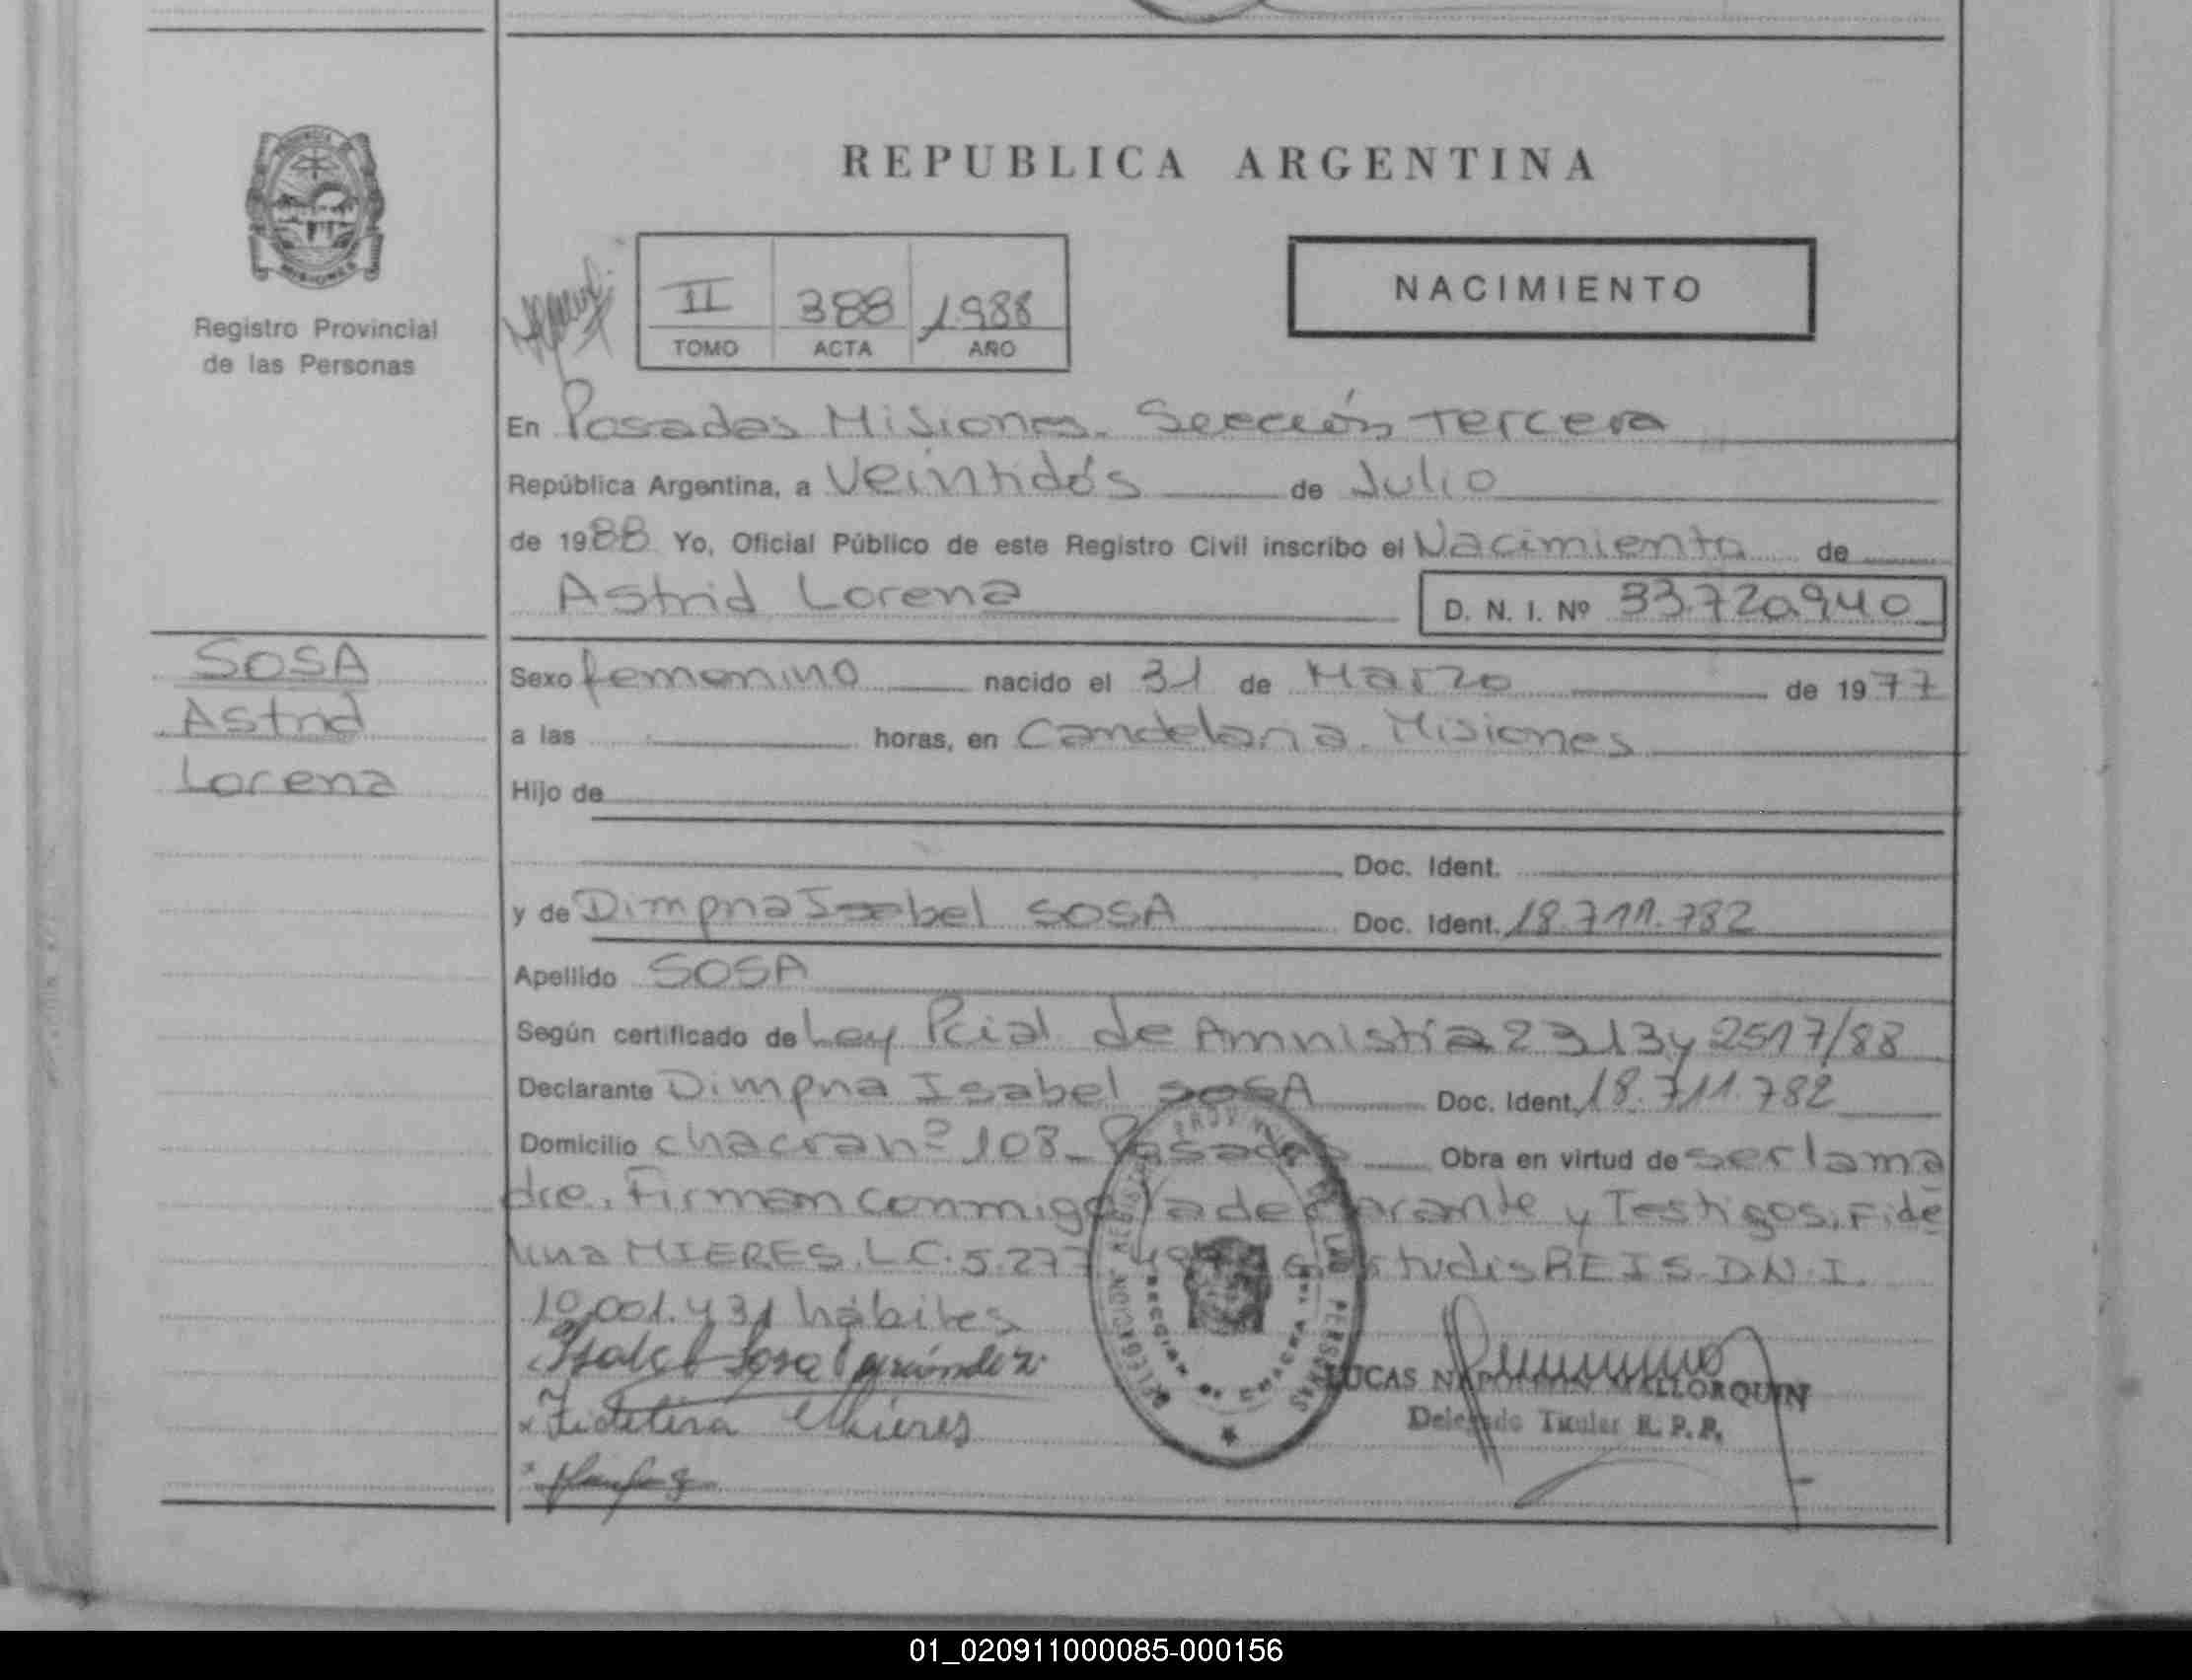 REPUBLICA ARGENTINA
Registro Provincial
de las Personas
II 388 1988
TOMO ACTA AÑO
NACIMIENTO
En Posadas Misiones. Sección Tercera
República Argentina, a Veintidós de Julio
de 1988 Yo, Oficial Público de este Registro Civil inscribo el Nacimiento de
Astrid Lorena D. N. I. Nº 33.720.940
SOSA
Astrid
Lorena
Sexo femenino nacido el 31 de Marzo de 1977
a las horas, en Candelaria. Misiones
Hijo de
Doc. Ident.
y de Dimpna Isabel SOSA Doc. Ident. 18.711.782
Apellido SOSA
Según certificado de Ley Pcial de Amnistía 2313 y 2517/88
Declarante Dimpna Isabel SOSA Doc. Ident. 18.711.782
Domicilio chacra nº 108 - Posadas Obra en virtud de ser la ma
dre. Firman conmigo la declarante y Testigos, Fide
lina MIERES. L.C. 5.277 REIS. D.N.I.
10.001.431 hábiles
Isabel Sosa
Fidelina Mieres
LUCAS NAPOLEON MALLORQUIN
Delegado Titular R. P. P.
MISIONES
01_020911000085-000156